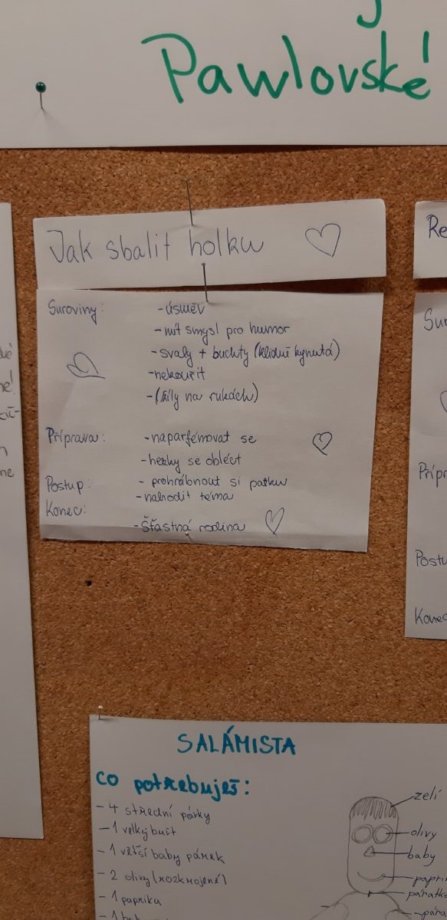 Pawlovské
Jak sbalit holku
Suroviny: - úsměv
- mít smysl pro humor
- svaly + buchty (klidně kynutá)
- nekouřit
- (žíly na rukách)
Příprava: - naparfémovat se
- hezky se obléct
Postup: - prohrábnout si patku
- nahodit téma
Konec:
- Šťastná rodina
Re
Sur
Přípr
Postu
Konec
SALÁMISTA
co potřebuješ:
- 4 střední párky
- 1 velký buřt
- 1 větší baby párek
- 2 olivy (rozkrojené)
- 1 paprika
zelí
olivy
baby
papri
párátk